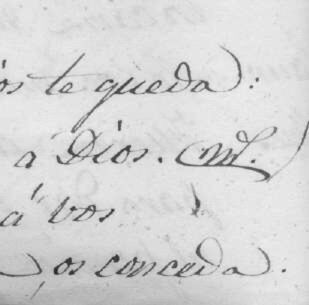 os te queda:
a Dios.
á vos
os conceda.